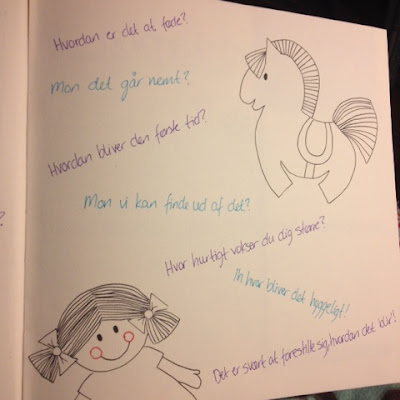 Hvordan er det at føde?
Mon det går nemt?
Hvordan bliver den første tid?
?
Mon vi kan finde ud af det?
Hvor hurtigt vokser du dig store?
Ih hvor bliver det hyggeligt!
Det er svært at forestille sig, hvordan det blir!